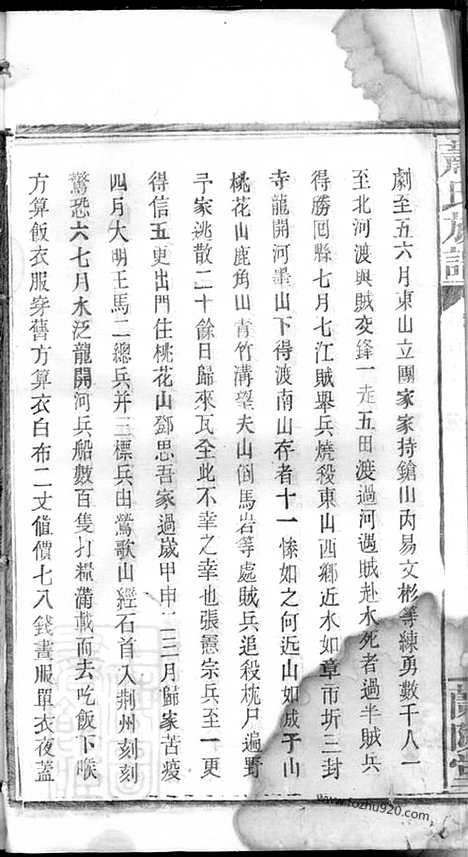 劇至五六月東山立團家家持鎗山內易文彬等練勇數千八一
至北河渡與賊交鋒一走五田渡過河遇賊赴水死者過半賊兵
得勝回縣七月七江賊舉兵燒殺東山西鄉近水如章市圻三封
寺龍開河墨山下得渡南山存者十一慘如之何近山如成子山
桃花山鹿角山青竹溝望夫山倒馬岩等處賊兵追殺枕尸遍野
予家逃散二十餘日歸來瓦全此不幸之幸也張憲宗兵至一更
得信五更出門住桃花山鄧思吾家過歲甲申一二三月歸家苦疫
四月大明王馬二總兵并三標兵由鶯歌山經石首入荆州刻刻
驚恐六七月水泛龍開河兵船數百隻打糧備載而去吃飯下喉
方算飯衣服穿舊方算衣白布二丈值價七八錢晝服單衣夜蓋
氏族譜
蘭陵堂
www.fozhu920.com